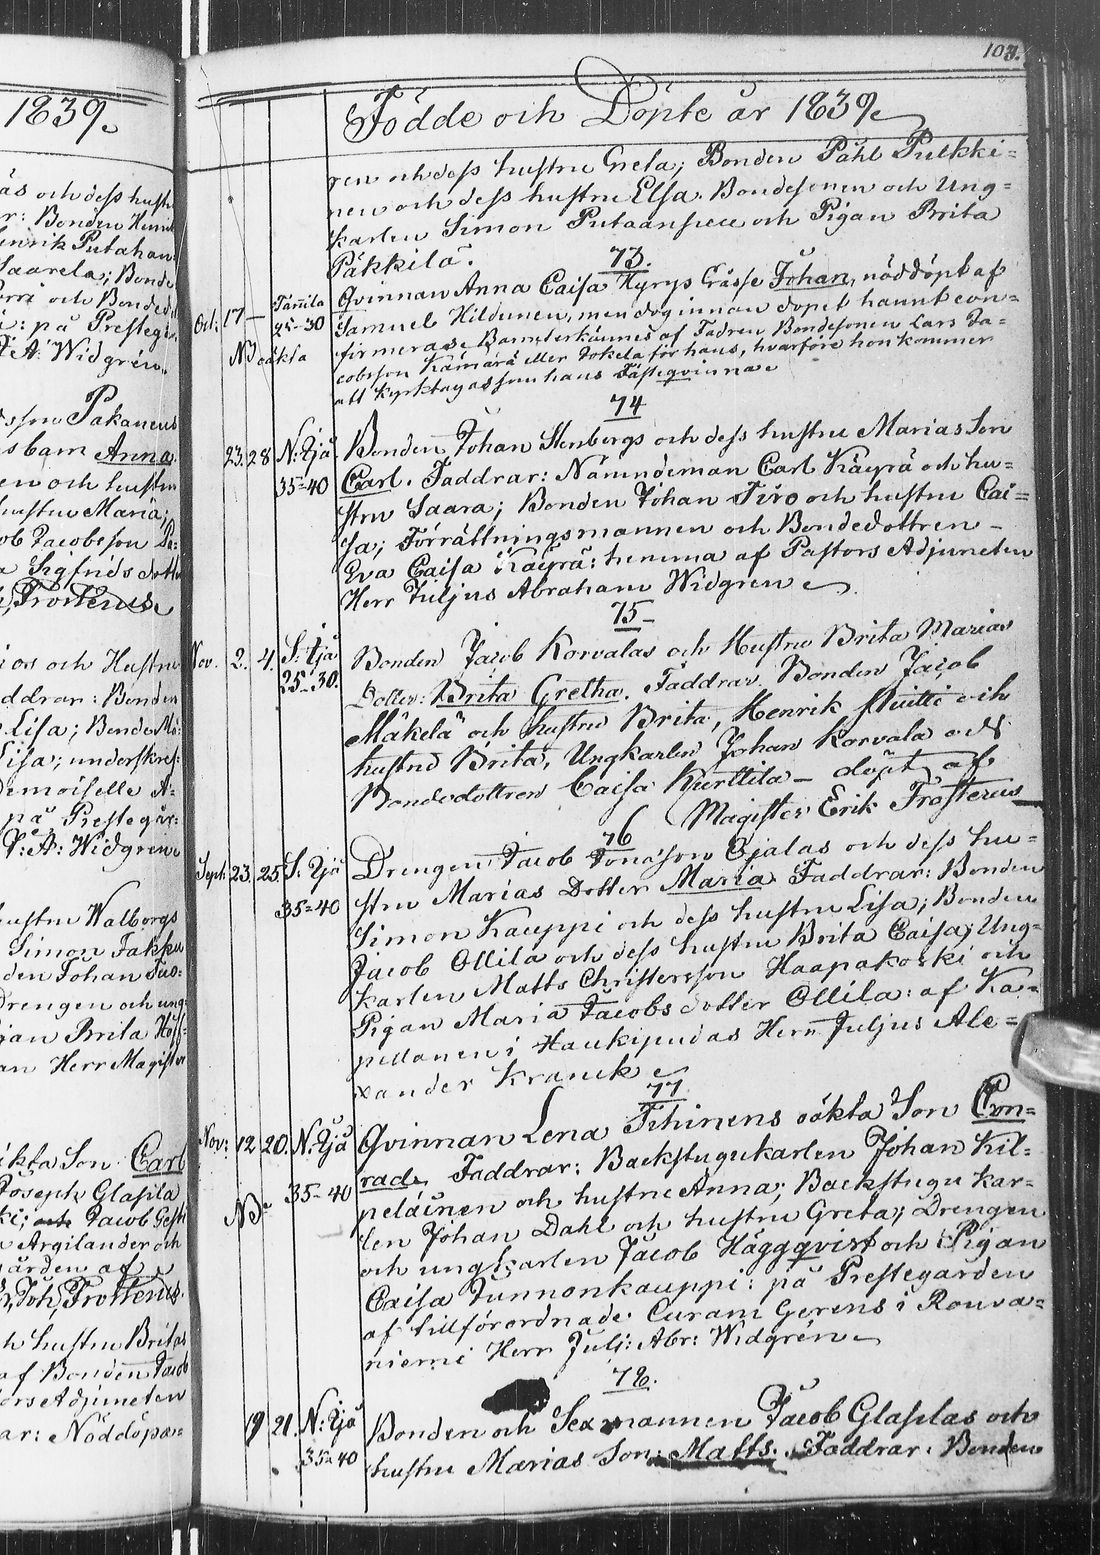 1839.
ås och dess hustr
r: Bonden Henri
enrik Putahan
Saarela; Bonde
och Bonded
på Prestegå
A: Widgrén.
Pakanens
barn Anna
en och hustru
hustru Maria;
ob Jacobsson
Sigfrids dotter
Frosterus
och Hustru
addrar: Bonden
Lisa; Bonde
Lisa; underskref:
emoiselle A=
på Prestegår:
A: Widgren
hustru Walborgs
Simon Jakku
den Johan
drengen och ung
igan Brita
an Herr Magister
ikta Son Carl
Joseph Glasila
och Jacob
Argilander och
gården af
Joh. Frosterus.
hustru Britas
af Bonden Jacob
ors Adjuncten
ar: Nöddöpa=
103.
Födde och Döpte år 1839.
ren och dess hustru Greta; Bonden Påhl Pulkki=
nen och dess hustru Elsa. Bondesonen och Ung=
karlen Simon Putaansuu och Pigan Brita
Päkkilä.
73.
Oct: 17 — Tämilä Qvinnan Anna Caisa Hyrys Gosse Johan, nöddöpt af
25-30 Samuel Hildunen, men dog innan dopet hannt con=
NB oäkta firmeras. Barnet erkännes af Fadren Bondesonen Lars Ja=
cobsson Kämärä eller Jokela för hans, hvarföre hon kommer
att kyrktagas som hans Fästeqvinna
74
23. 28 N: Ijå Bonden Johan Stenbergs och dess hustru Marias Son
35-40 Carl. Faddrar: Nämndeman Carl Käyrä och hu=
stru Saara; Bonden Johan Tiro och hustru Cai=
sa; Förrättningsmannen och Bondedottren
Eva Caisa Käyrä: hemma af Pastors Adjuncten
Herr Juljus Abraham Widgren
75
Nov. 2. 4. S: Ijå Bonden Jacob Korvalas och Hustru Brita Marias
25-30. Dotter: Brita Gretha. Faddrar Bonden Jacob
Mäkelä och hustru Brita, Henrik Muitti och
hustru Brita, Ungkarlen Johan Korvala och
Bondedottren Caisa Kurttila — döpt af
Magister Erik Frosterus
76
Sept: 23. 25. S. Ijå Drengen Jacob Jonasson Ojalas och dess hu=
35-40 stru Marias Dotter Maria Faddrar: Bonden
Simon Kauppi och dess hustru Lisa; Bonden
Jacob Ollila och dess hustru Brita Caisa; Ung=
karlen Matts Christersson Haapakoski och
Pigan Maria Jacobsdotter Ollila: af Ka=
pellanen i Haukipudas Herr Juljus Ale=
xander Kranck
77
Nov: 12 20. N. Ijå Qvinnan Lena Tihinens oäkta Son Con=
35-40 rad. Faddrar: Backstugukarlen Johan Kil=
peläinen och hustru Anna; Backstugu kar=
NB len Johan Dahl och hustru Greta; Drengen
och ungkarlen Jacob Häggqvist och Pigan
Caisa Junnonkauppi: på Prestegården
af tillförordnade Curam Gerens i Rova=
niemi Herr Julj: Abr: Widgrén
78.
19 21. N: Ijå Bonden och Sexmannen Jacob Glasilas och
35-40 hustru Marias Son: Matts. Faddrar: Bonden